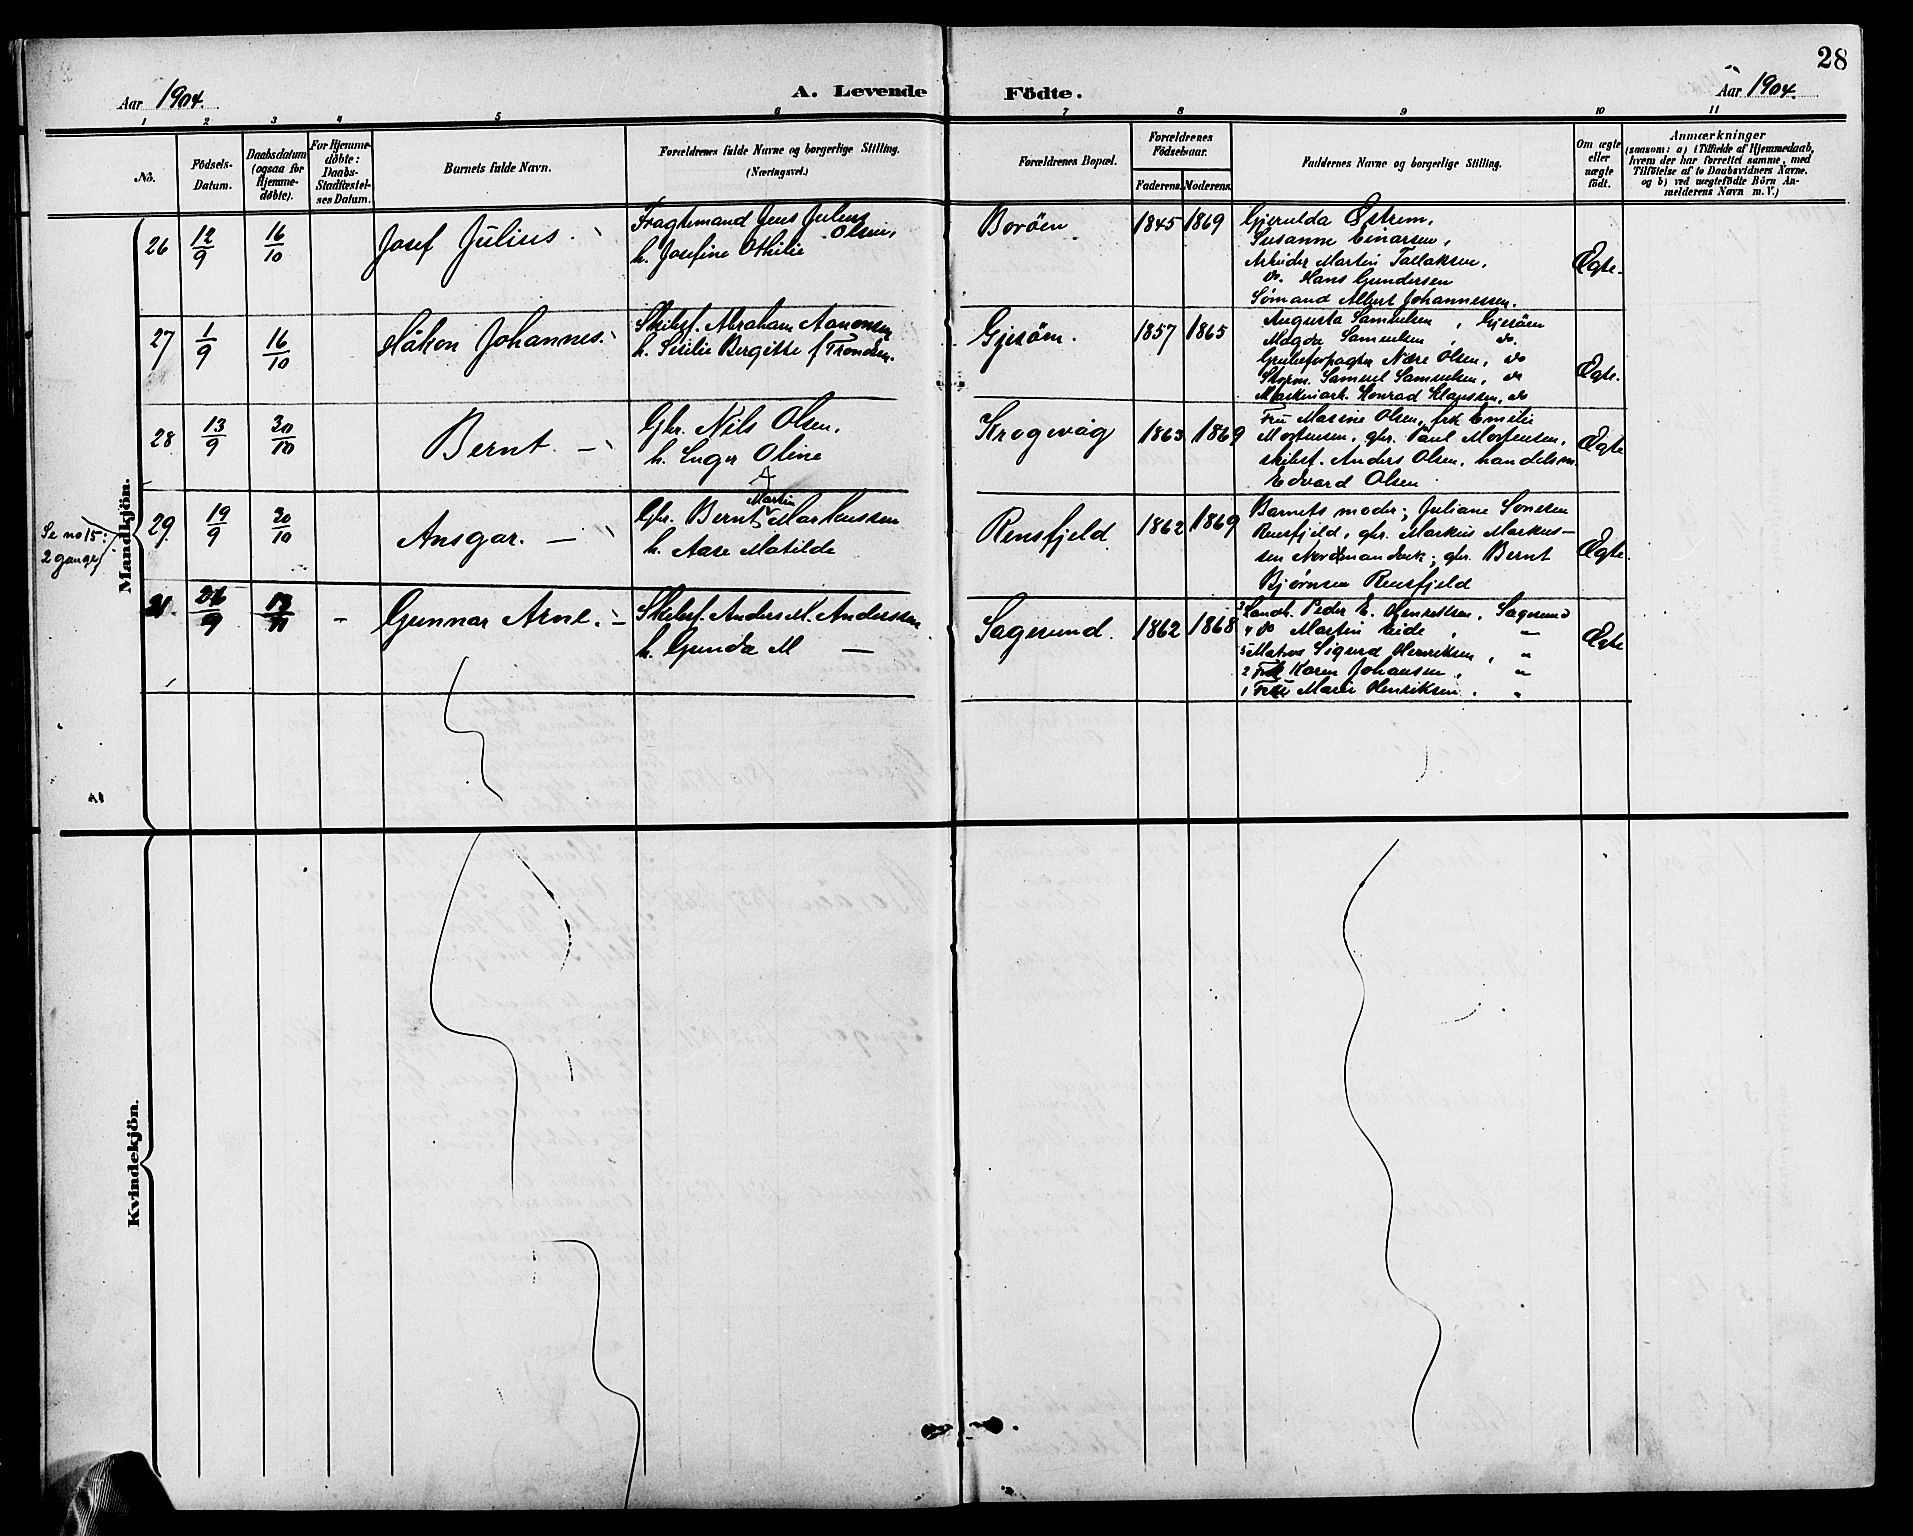 28
Aar 1904. A. Levende Födte. Aar 1904.
1 2 3 4 5 6 7 8 9 10 11
No.
Födsels-
Datum.
Daabsdatum
(ogsaa for
Hjemme-
døbte).
For Hjemme-
døbte:
Daabs-
Stadfæstel-
ses Datum.
Barnets fulde Navn.
Forældrenes fulde Navne og borgerlige Stilling.
(Næringsvei.)
Forældrenes Bopæl.
Forældrenes
Födselsaar.
Faderens. Moderens.
Faddernes Navne og borgerlige Stilling.
Om ægte
eller
uægte
födt.
Anmærkninger
(saasom: a) i Tilfælde af Hjemmedaab,
hvem der har forrettet samme, med
Tilföielse af to Daabsvidners Navne,
og b) ved uægtefödte Börn An-
melderens Navn m. V.)
Mandkjön.
26 12/9 16/10 Josef Julius.
Fragtemand Jens Julius
Olsen,
h. Josefine Othilie
Borøen 1845 1869
Gjerulda Østrem,
Susanne Einarsen,
Arbeider Martin Tallaksen,
do. Hans Gundersen
Sømand Albert Johannessen.
Ægte.
27 1/9 16/10 Håkon Johannes.
Skibsf. Abraham Aanonsen
h. Sesilie Bergitte f Trondsen.
Gjesøen. 1857 1865
Augusta Samuelsen, Gjesøen
Magda Samuelsen, do.
Olsen, do
Samuel Samuelsen, do
Konrad Klaussen, do
Ægte.
28 13/9 30/10 Bernt. —
Gbr. Nils Olsen,
h. Inger Oline
Krogevåg 1863 1869
Fru Massine Olsen, frk Emilie
Mortensen, gbr. Paul Mortensen,
skibsf. Anders Olsen, handelsm.
Edvard Olsen
Ægte
Se no 15:
2 ganger
29. 19/9 30/10 Ansgar. —
Martin
Gbr. Bernt Markussen
h. Aase Matilde
Rensfjeld 1862 1869
Barnets moder; Juliane Sønesen
Rensfjeld, gbr. Markus Markus-
sen; gbr. Bernt
Bjørnsen Rensfjeld
Ægte.
9 11 - Gunnar Arne. —
Skibsf. Anders M. Anderssen
h. Gunda M —
Sagesund. 1862 1868
3 Landh. Peder E. Henriksen, Sagesund
4 do Martin Eide, "
5 Matros Sigurd Henriksen, "
2 Frk Karen Johansen, "
1 Fru Marie Henriksen, "
Ægte
Kvindekjön.